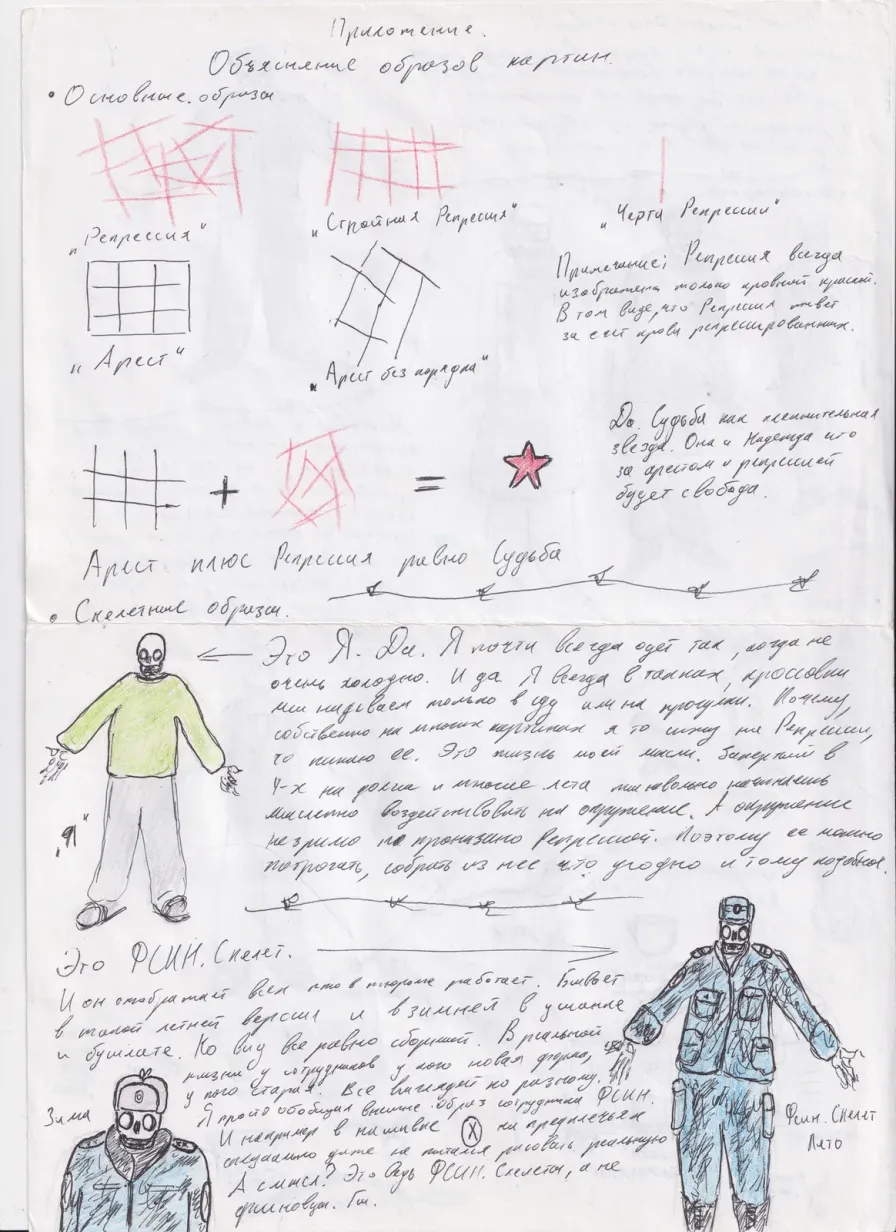 Приложение.
Объяснение образов картин.
• Основные образы
„Репрессия“
„Стройная Репрессия“
„Черта Репрессии“
„Арест“
„Арест без порядка“
Примечание: Репрессия всегда
изображена только кровавой краской.
В том виде, что Репрессия живет
за счет крови репрессированных.
+
=
Да. Судьба как пленительная
звезда. Она и Надежда что
за арестом и репрессией
будет свобода.
Арест плюс Репрессия равно Судьба
• Скелетные образы.
Это Я. Да. Я почти всегда одет так, когда не
очень холодно. И да Я всегда в тапках, кроссовки
мы надеваем только в суд или на прогулки. Почему,
собственно на многих картинах я то сижу на Репрессии,
то пинаю ее. Это жизнь моей мысли. Запертый в
4-х на долгие и многие лета невольно начинаешь
мысленно воздействовать на окружение. А окружение
незримо пронизано Репрессией. Поэтому ее можно
потрогать, собрать из нее что угодно и тому подобное.
„Я“
Это ФСИН. Скелет.
И он отображает всех кто в тюрьме работает. Бывает
в такой летней версии и в зимней в ушанке
и бушлате. Но вид все равно сборный. В реальной
жизни у сотрудников у кого новая форма,
у кого старая. Все выглядят по разному.
Я просто обобщил внешне образ сотрудника ФСИН.
И например в нашивке Х на предплечьях
специально даже не пытался рисовать реальную
А смысл? Это ведь ФСИН. Скелеты, а не
фсиновцы. Гы.
Зима
Фсин. Скелет
Лето